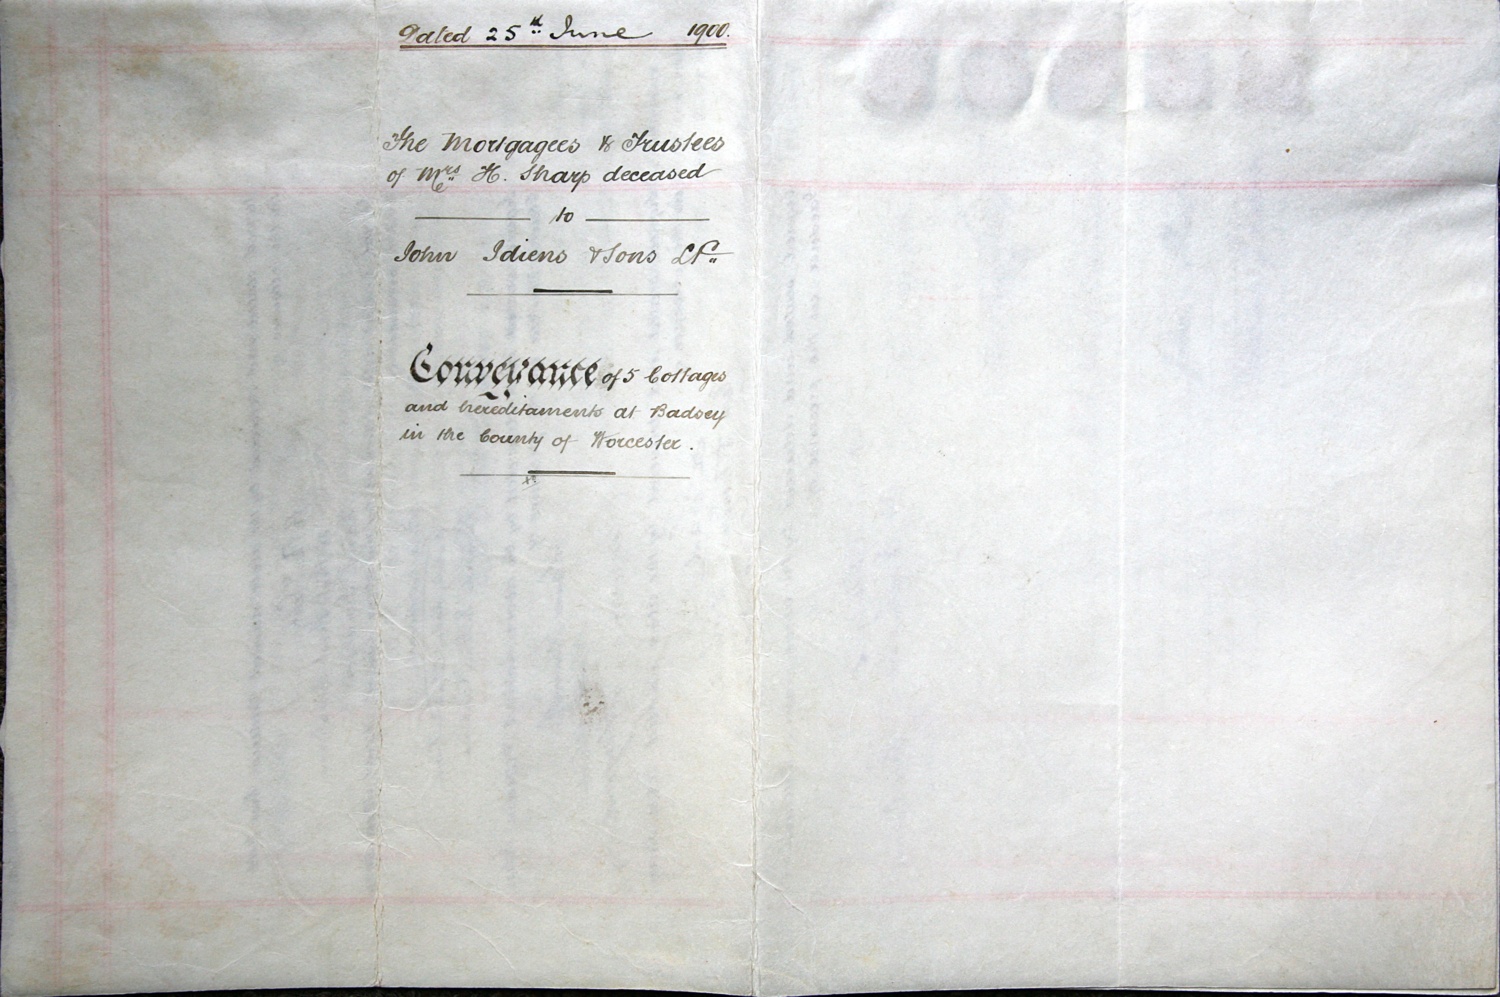 Dated 25th June 1900.
The Mortgagees & Trustees
of Mrs H. Sharp deceased
to
John Idiens & Sons Ld
Conveyance of 5 Cottages
and hereditaments at Badsey
in the County of Worcester.